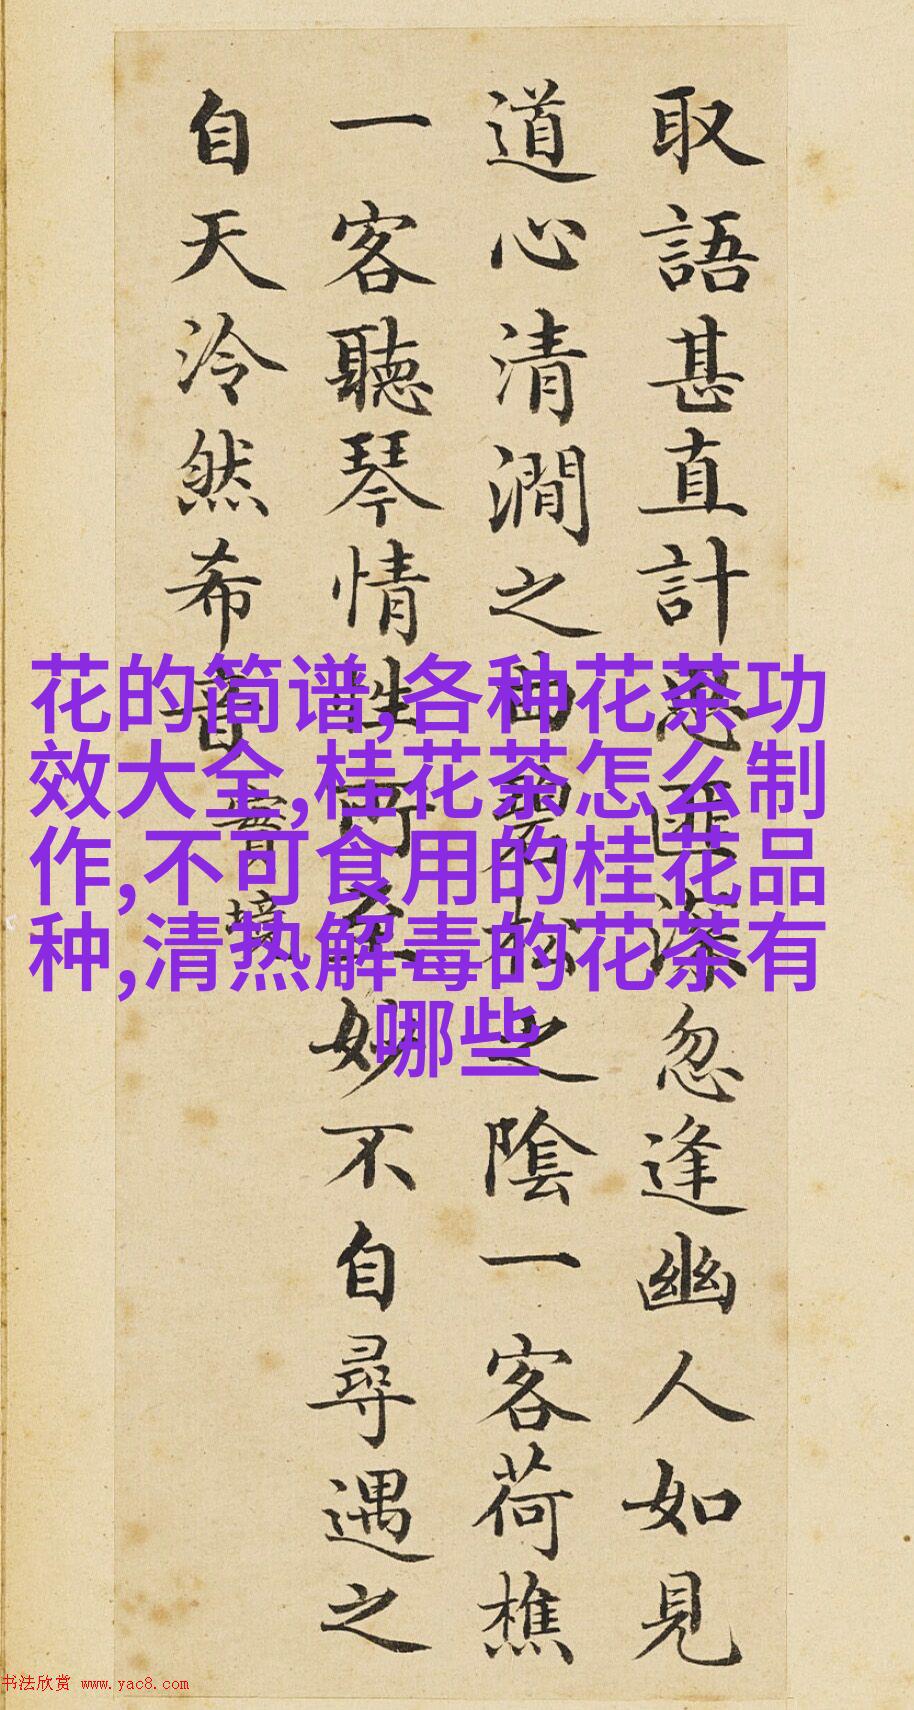 取語甚直計思匪深忽逢幽人如見
道心清澗之曲碧松之陰一客荷樵
一客聽琴情性所至妙不自尋遇之
自天泠然希音
實境
花的简谱,各种花茶功
效大全,桂花茶怎么制
作,不可食用的桂花品
种,清热解毒的花茶有
哪些
书法欣赏 www.yac8.com